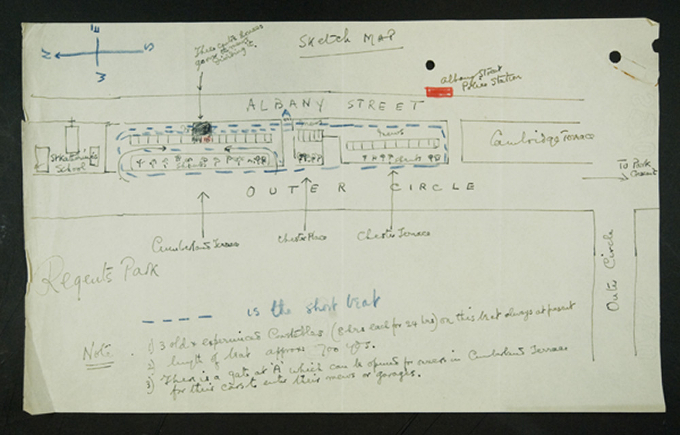 Sketch MAP
N
E
S
W
Albany Street
Police Station
ALBANY STREET
A
mews
Cambridge Terrace
St Katharine's
School
To Park
Crescent
OUTER CIRCLE
Cumberland Terrace
Chester Place
Chester Terrace
Outer Circle
Regents Park
is the short beat
Note.
1) 3 old & experienced Constables (8 hrs each for 24 hrs) on this beat always at present
2) length of beat approx 700 yds.
3) There is a gate at A which can be opened for in Cumberland Terrace
for their cars to enter their mews or garages.